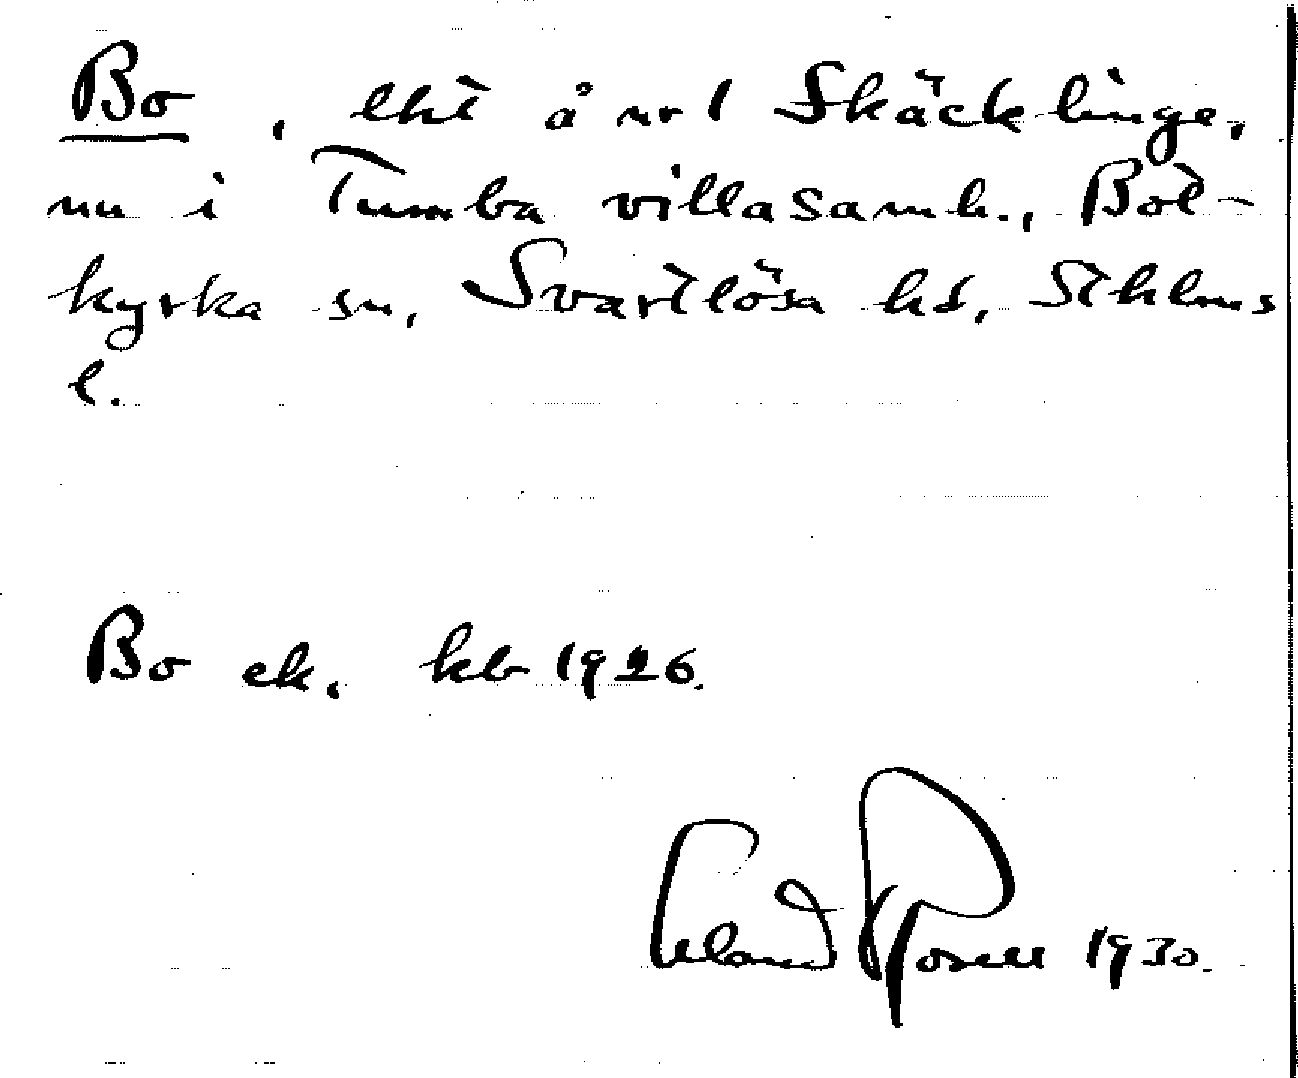 Bo, lht å nr 1 Skäcklinge,
nu i Tumba villasamh., Bot-
kyrka sn, Svartlösa hd, Sthlms
l.
Bo ek. kb 1926.
Erland Rosell 1930.